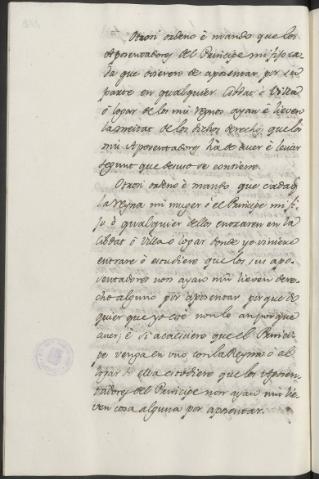 Otrosi ordeno è mando que los
Aposentadores del Principe mi fijo ca-
da que ovieren de aposentar, por su
parte en qualquier Cibdat è Villa
ò logar de los mis regnos ayan è lieven
la meitat de los dichos derechos que los
mis Aposentadores han de aver è levar
segunt que desuso se contiene.
Otrosi ordeno è mando que cada q
la Reyna mi muger ò el Principe mi fi-
jo ò qualquier dellos entraren en la
Cibdat ò Villa ò logar donde yo viniere
entrare ò estudiere que los sus apo-
sentadores non ayan nin lieven dere-
cho alguno por aposentar porque do
quier que yo esté non lo an porque
aver, è si acaesciere que el Princi-
pe venga en uno con la Reyna ò al
logar do ella estodiere que los Aposen-
tadores del Principe non ayan nin lie-
ven cosa alguna por aposentar.